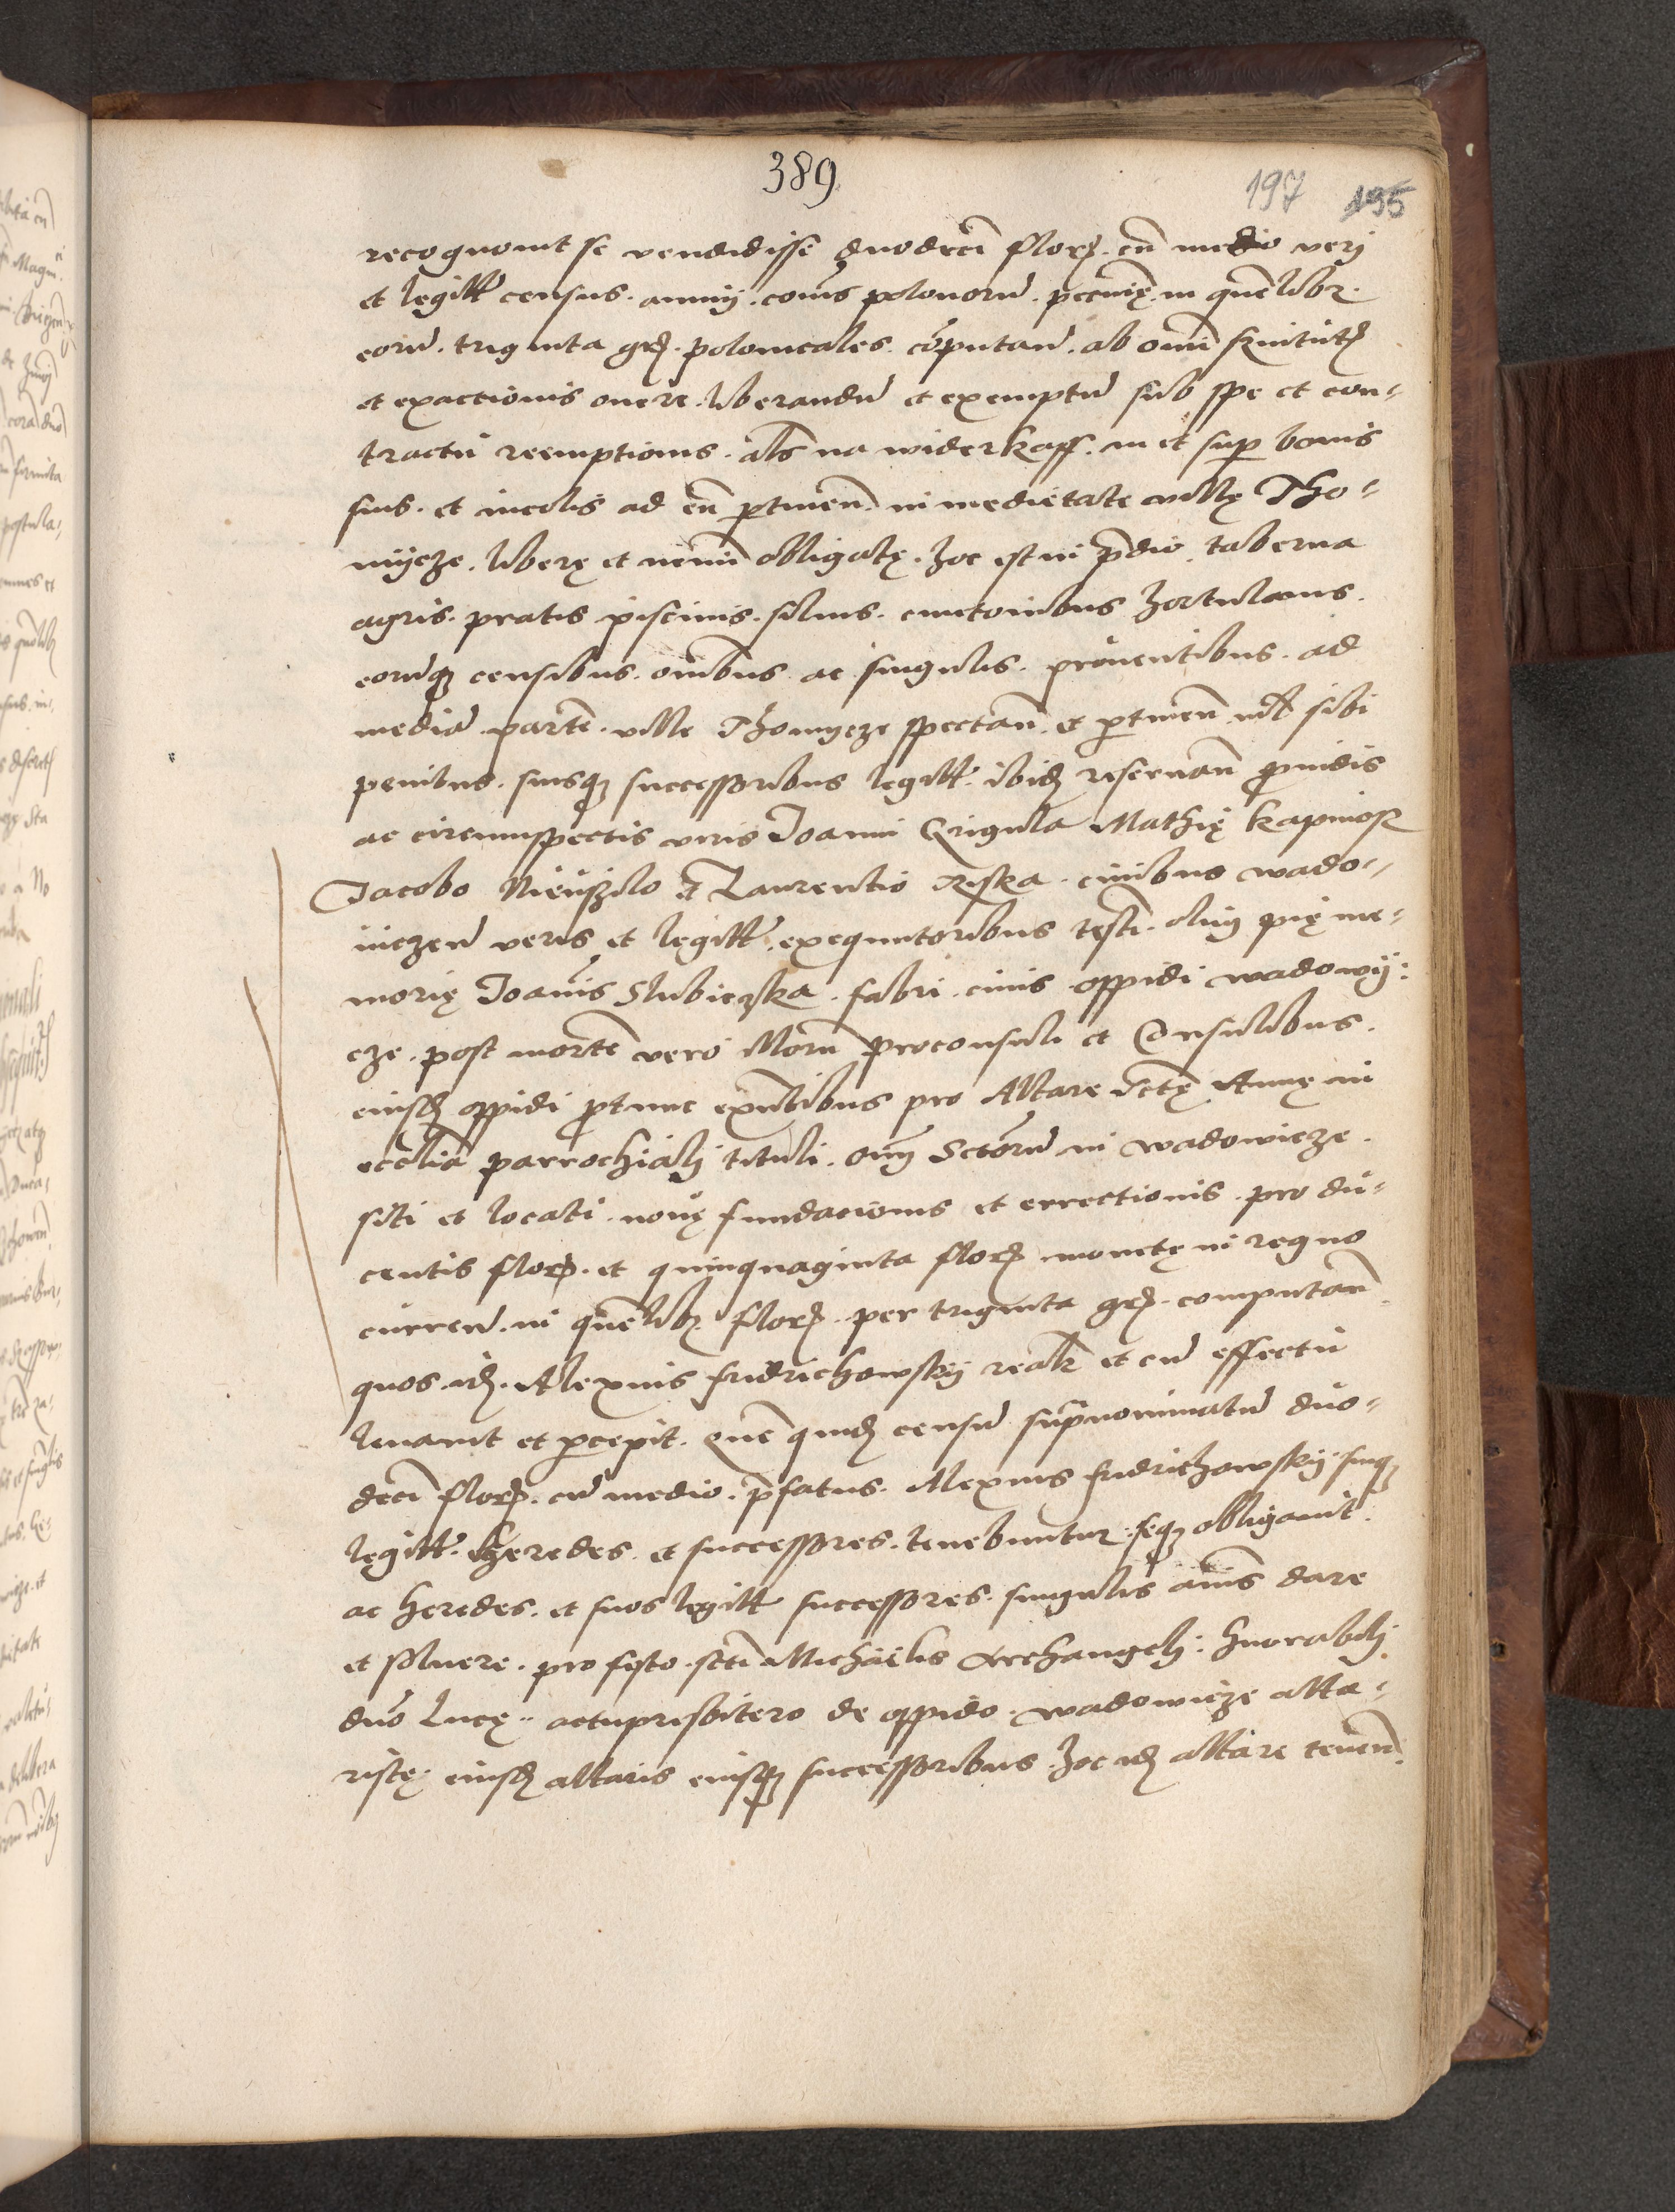 389
197 195
recognouit se vendidisse duodeci florꝭ. cū medio verj
et legittī census. annuj. cōis polonorū. pecunię. in quēlibꝫ.
eorū. triginta grꝭ. polonicales. cōputañ. ab omi seruitutꝭ
et exactionis onere. liberandū et exemptū sub spe et con-
tractu reemptionis. als na widerkaff. in et sup bonis
suis. et incolis ad eū ptineñ. in medietate villę Tho-
myeze. liberę et nemi obligatę. hoc est in pdio. taberna
agris. pratis piscinis. siluis. cmetonibus hortulanis.
eorūqꝫ censibus. omibus ac singulis. prouentibus. ad
mediā partē. ville Thomyeze spectañ. et ptineñ nil sibi
penitus. suisqꝫ successoribus legittī. ibidꝫ reseruañ prouidis
ac circumspectis viris Joanni Grigula Mathię kapnior
Jacobo Nieuszilo et Laurentio Riska. ciuibus wado-
uiczeñ veris et legittī. exequutoribus testi. olim pię me-
morię Joanis Slubiczka. fabri. ciuis oppidi wadowy:
cze. post mortē vero Illorū proconsuli et Consulibus.
eiusdꝫ oppidi ptunc exñtibus pro Altare sctę Annę in
ecclia parrochialj tituli. oīm Sctorū in wadowicze.
siti et locati. nouę fundationis et errectionis. pro du-
centis florꝭ. et quinquaginta florꝭ monetę in regno
curreñ. in quēlibꝫ. florꝭ. per triginta grꝭ. computañ.
quos. idꝫ. Alexius fridrichowskj realr et cū effectu
leuauit et pcepit. Quē quidꝫ censū supnominatū duo-
deci florꝭ. cū medio. pfatus. Alexius fridrichowskj suiqꝫ
legittī. Heredes. et successores. tenebuntur. seqꝫ obligauit.
ac heredes. et suos legittī successores. singulis anis dare
et soluere. pro festo. scti Michaelis Archangelj: honorabilj
dno Lucę. actupresbitero de oppido. wadowicze alta-
ristę. eiusdꝫ altaris eiusqꝫ successoribus. hoc idꝫ altare teneñ.